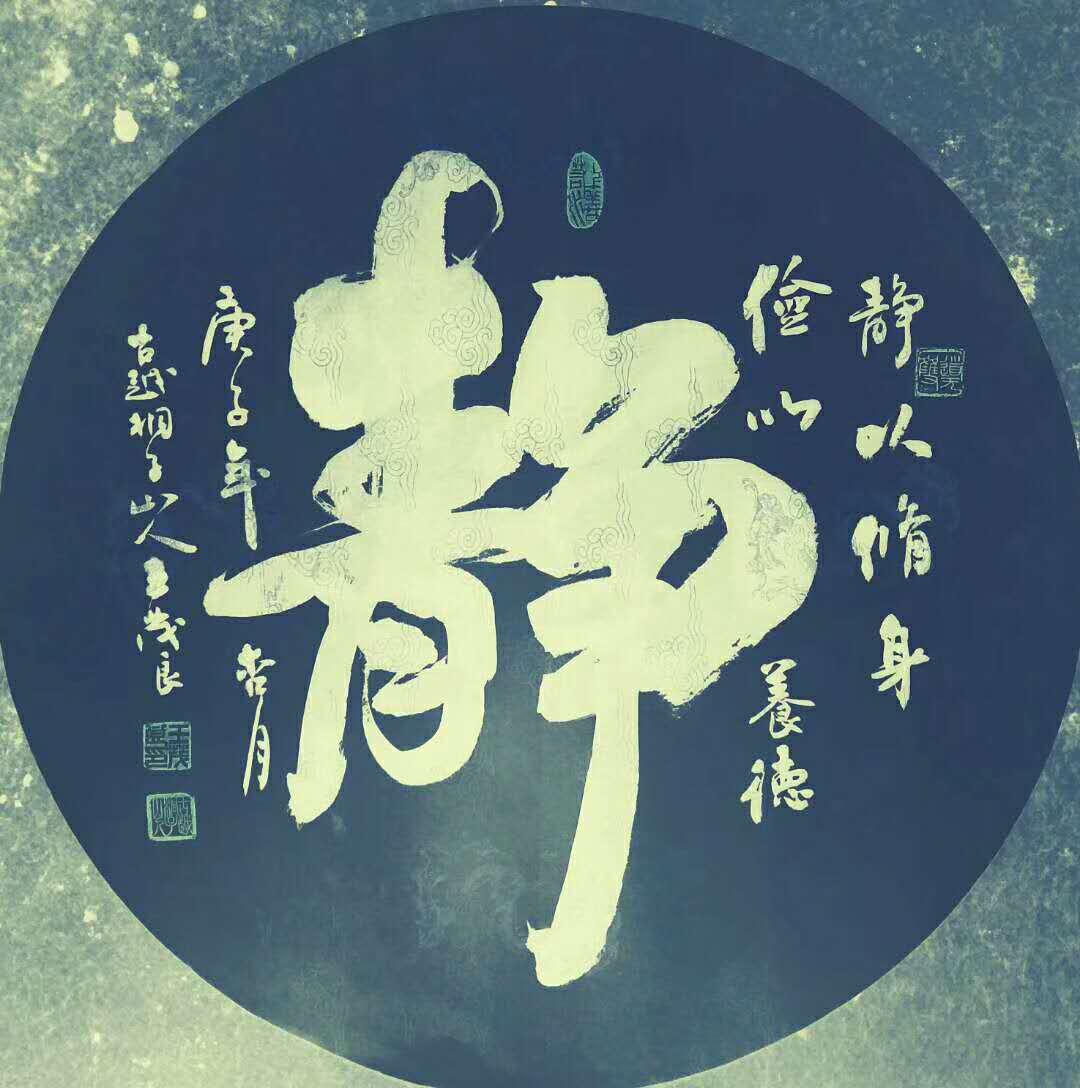 静以脩身
儉以養德
上善若水
静
庚子年杏月
古越桐子山人王茂良